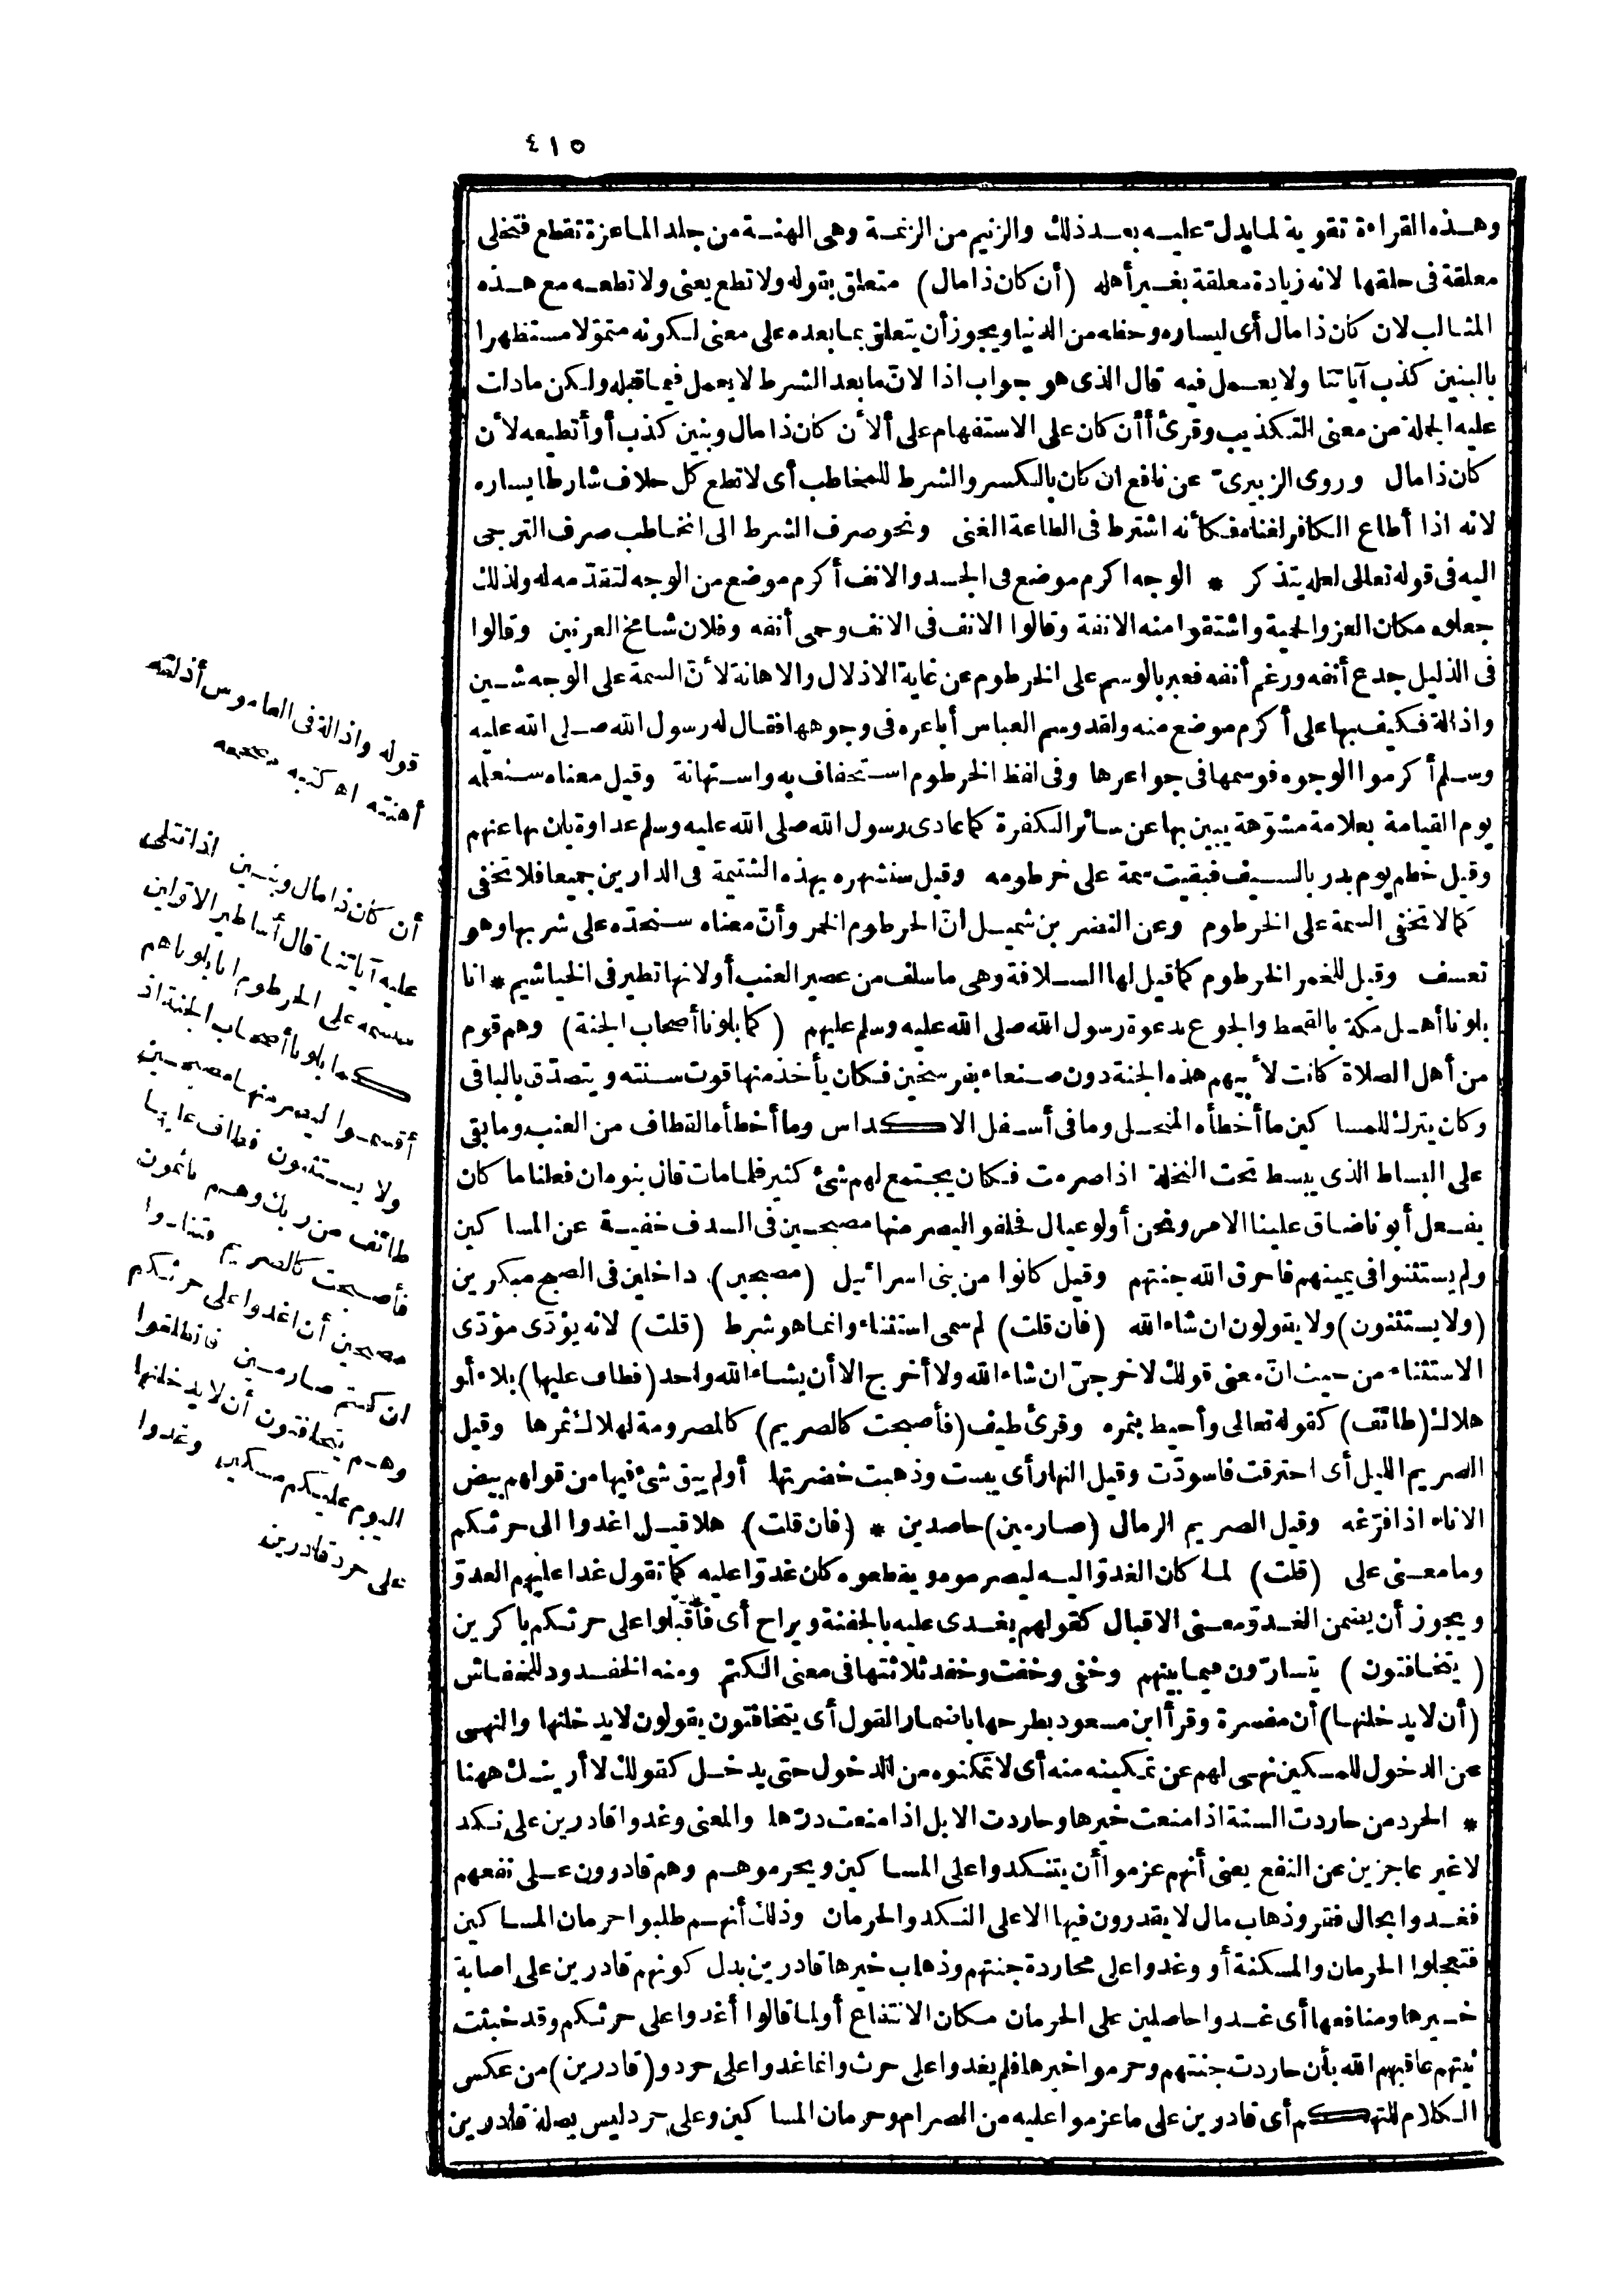 ٤١٥
وهذه القراءة تقوية لما يدل عليه بعد ذلك والزنيم من الزنمة وهى الهنة من جلد الماعزة تقطع فتخلى
معلقة فى حلقها لانه زيادة معلقة بغير أهله (أن كان ذا مال) متعلق بقوله ولا تطع يعنى ولا تطعه مع هذه
المثالب لان كان ذا مال أى ليساره وحظه من الدنيا ويجوز أن يتعلق بما بعده على معنى لكونه متموّلا مستظهرا
بالبنين كذب آياتنا ولا يعمل فيه قال الذى هو جواب اذا لانّ ما بعد الشرط لا يعمل فيما قبله ولكن ما دلت
عليه الجملة من معنى التكذيب وقرئ أأن كان على الاستفهام على ألأن كان ذا مال وبنين كذب أو أتطيعه لأن
كان ذا مال وروى الزبيرىّ عن نافع ان كان بالكسر والشرط للمخاطب أى لا تطع كل حلاف شارطا يساره
لانه اذا أطاع الكافر لغناه فكأنه اشترط فى الطاعة الغنى ونحو صرف الشرط الى المخاطب صرف الترجى
اليه فى قوله تعالى لعله يتذكر * الوجه اكرم موضع فى الجسد والانف أكرم موضع من الوجه لتقدّمه له ولذلك
جعلوه مكان العز والحمية واشتقوا منه الانفة وقالوا الانف فى الانف وحمى أنفه وفلان شامخ العرنين وقالوا
فى الذليل جدع أنفه ورغم أنفه فعبر بالوسم على الخرطوم عن غاية الاذلال والاهانة لأنّ السمة على الوجه شين
واذالة فكيف بها على أكرم موضع منه ولقد وسم العباس أباعره فى وجوهها فقال له رسول الله صلى الله عليه
وسلم أكرموا الوجوه فوسمها فى جواعرها وفى لفظ الخرطوم استخفاف به واستهانة وقيل معناه سنعلمه
يوم القيامة بعلامة مشوّهة يبين بها عن سائر الكفرة كما عادى رسول الله صلى الله عليه وسلم عداوة بان بها عنهم
وقيل خطم يوم بدر بالسيف فبقيت سمة على خرطومه وقيل سنشهره بهذه الشتيمة فى الدارين جميعا فلا تخفى
كما لا تخفى السمة على الخرطوم وعن النضر بن شميل انّ الخرطوم الخمر وأنّ معناه سنحدّه على شربها وهو
تعسف وقيل للخمر الخرطوم كما قيل لها السلافة وهى ما سلف من عصير العنب أو لانها تطير فى الخياشيم * انا
بلونا أهل مكة بالقحط والجوع بدعوة رسول الله صلى الله عليه وسلم عليهم (كما بلونا أصحاب الجنة) وهم قوم
من أهل الصلاة كانت لأبيهم هذه الجنة دون صنعاء بفرسخين فكان يأخذ منها قوت سنته ويتصدّق بالباقى
وكان يترك للمساكين ما أخطأه المنجل وما فى أسفل الاكداس وما أخطأه القطاف من العنب وما بقى
على البساط الذى يبسط تحت النخلة اذا صرمت فكان يجتمع لهم شئ كثير فلما مات قال بنوه ان فعلنا ما كان
يفعل أبونا ضاق علينا الامر ونحن أولو عيال فحلفوا ليصرمنها مصبحين فى السدف خفية عن المساكين
ولم يستثنوا فى يمينهم فاحرق الله جنتهم وقيل كانوا من بنى اسرائيل (مصبحين) داخلين فى الصبح مبكرين
(ولا يستثنون) ولا يقولون ان شاء الله (فان قلت) لم سمى استثناء وانما هو شرط (قلت) لانه يؤدّى مؤدّى
الاستثناء من حيث انّ معنى قولك لاخرجنّ ان شاء الله ولا أخرج الا أن يشاء الله واحد (فطاف عليها) بلاء أو
هلاك (طائف) كقوله تعالى وأحيط بثمره وقرئ طيف (فأصبحت كالصريم) كالمصرومة لهلاك ثمرها وقيل
الصريم الليل أى احترقت فاسودّت وقيل النهار أى يبست وذهبت خضرتها أو لم يبق شئ فيها من قولهم بيض
الاناء اذا فرّغه وقيل الصريم الرمال (صارمين) حاصدين * (فان قلت) هلا قيل اغدوا الى حرثكم
وما معنى على (قلت) لما كان الغدوّ اليه ليصرموه ويقطعوه كان غدوّا عليه كما تقول غدا عليهم العدوّ
ويجوز أن يضمن الغدوّ معنى الاقبال كقولهم يغدى عليه بالجفنة ويراح أى فأقبلوا على حرثكم باكرين
(يتخافتون) يتسارّون فيما بينهم وخفى وخفت وخفد ثلاثتها فى معنى الكتم ومنه الخفدود للخفاش
(أن لا يدخلنها) أن مفسرة وقرأ ابن مسعود بطرحها باضمار القول أى يتخافتون يقولون لا يدخلنها والنهى
عن الدخول للمسكين نهى لهم عن تمكينه منه أى لا تمكنوه من الدخول حتى يدخل كقولك لا أرينك ههنا
* الحرد من حاردت السنة اذا منعت خيرها وحاردت الابل اذا منعت درّها والمعنى وغدوا قادرين على نكد
لا غير عاجزين عن النفع يعنى أنهم عزموا أن يتنكدوا على المساكين ويحرموهم وهم قادرون على نفعهم
فغدوا بحال فقر وذهاب مال لا يقدرون فيها الا على النكد والحرمان وذلك أنهم طلبوا حرمان المساكين
فتعجلوا الحرمان والمسكنة أو وغدوا على محاردة جنتهم وذهاب خيرها قادرين بدل كونهم قادرين على اصابة
خيرها ومنافعها أى غدوا حاصلين على الحرمان مكان الانتفاع أو لما قالوا أغدوا على حرثكم وقد خبثت
نيتهم عاقبهم الله بأن حاردت جنتهم وحرموا خيرها فلم يغدوا على حرث وانما غدوا على حرد و(قادرين) من عكس
الكلام للتهكم أى قادرين على ما عزموا عليه من الصرام وحرمان المساكين وعلى حرد ليس بصلة قادرين
قوله واذالة فى القاموس أذلته
أهنته اه كتبه مصححه
أن كان ذا مال وبنين اذا تتلى
عليه آياتنا قال أساطير الاوّلين
سنسمه على الخرطوم انا بلوناهم
كما بلونا أصحاب الجنة اذ
أقسموا ليصرمنها مصبحين
ولا يستثنون فطاف عليها
طائف من ربك وهم نائمون
فأصبحت كالصريم فتنادوا
مصبحين أن اغدوا على حرثكم
ان كنتم صارمين فانطلقوا
وهم يتخافتون أن لا يدخلنها
اليوم عليكم مسكين وغدوا
على حرد قادرين